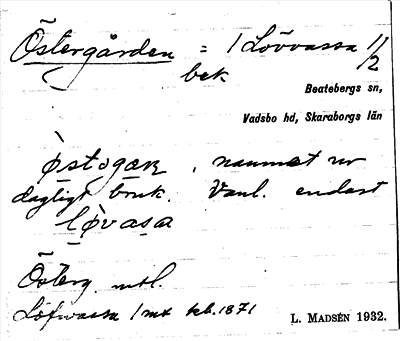 Östergården = 1 Lövvassa 1/2
bek
Beatebergs sn,
Vadsbo hd, Skaraborgs län
ò̜stogaʀ, namnet ur
dagligt bruk. Vanl. endast
lø̀vasa
Österg. mtl.
Löfwassa 1 mt kb. 1871
L. MADSÉN 1932.